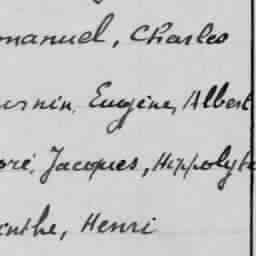 manuel, Charles
urnin, Eugène, Albert
oré, Jacques, Hippolyte
inthe, Henri